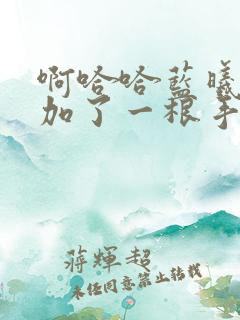 啊哈哈蓝曦
加了一根手
蒋輝超
未经同意禁止转载